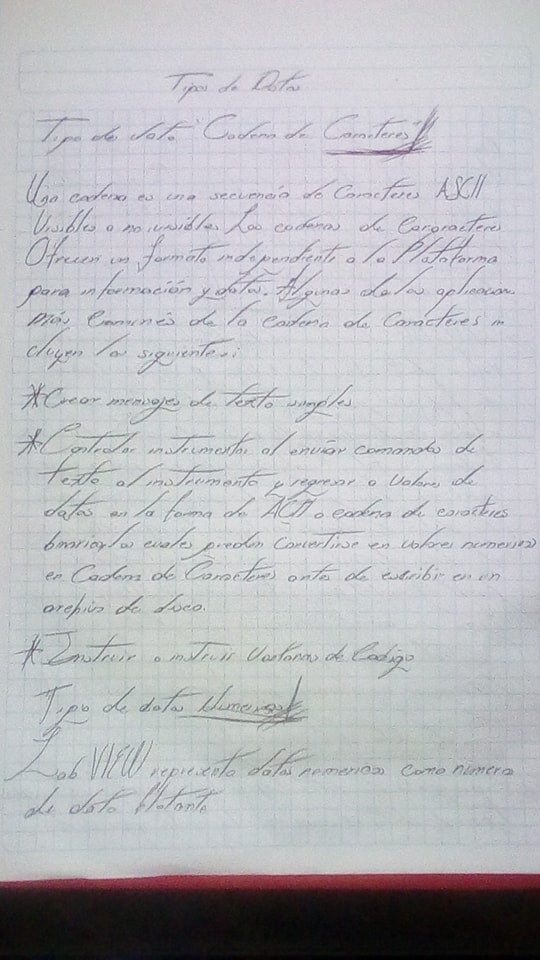 Tipos de Datos
Tipo de dato "Cadena de Caracteres"
Una cadena es una secuencia de Caracteres ASCII
Visibles o no visibles Las cadenas de Cargracteres
Ofrecen un formato independiente a la Plataforma
para información y datos. Algunas de las aplicacio
más Comunes de la cadena de Caracteres in
cluyen los siguientes:
*Crear mensajes de texto simples
*Controlar instrumentos al enviar comandos de
texto al instrumento y regresar a valores de
datos en la forma de ACII o cadena de caracteres
binarios los cuales pueden Convertirse en valores numericos
en Cadena de Caracteres antes de escribir en un
archivo de disco.
*Instruir o instruir Ventanas de Codigo
Tipo de datos Numericos
Lab VIEW representa datos numericos como numeros
de dato flotante